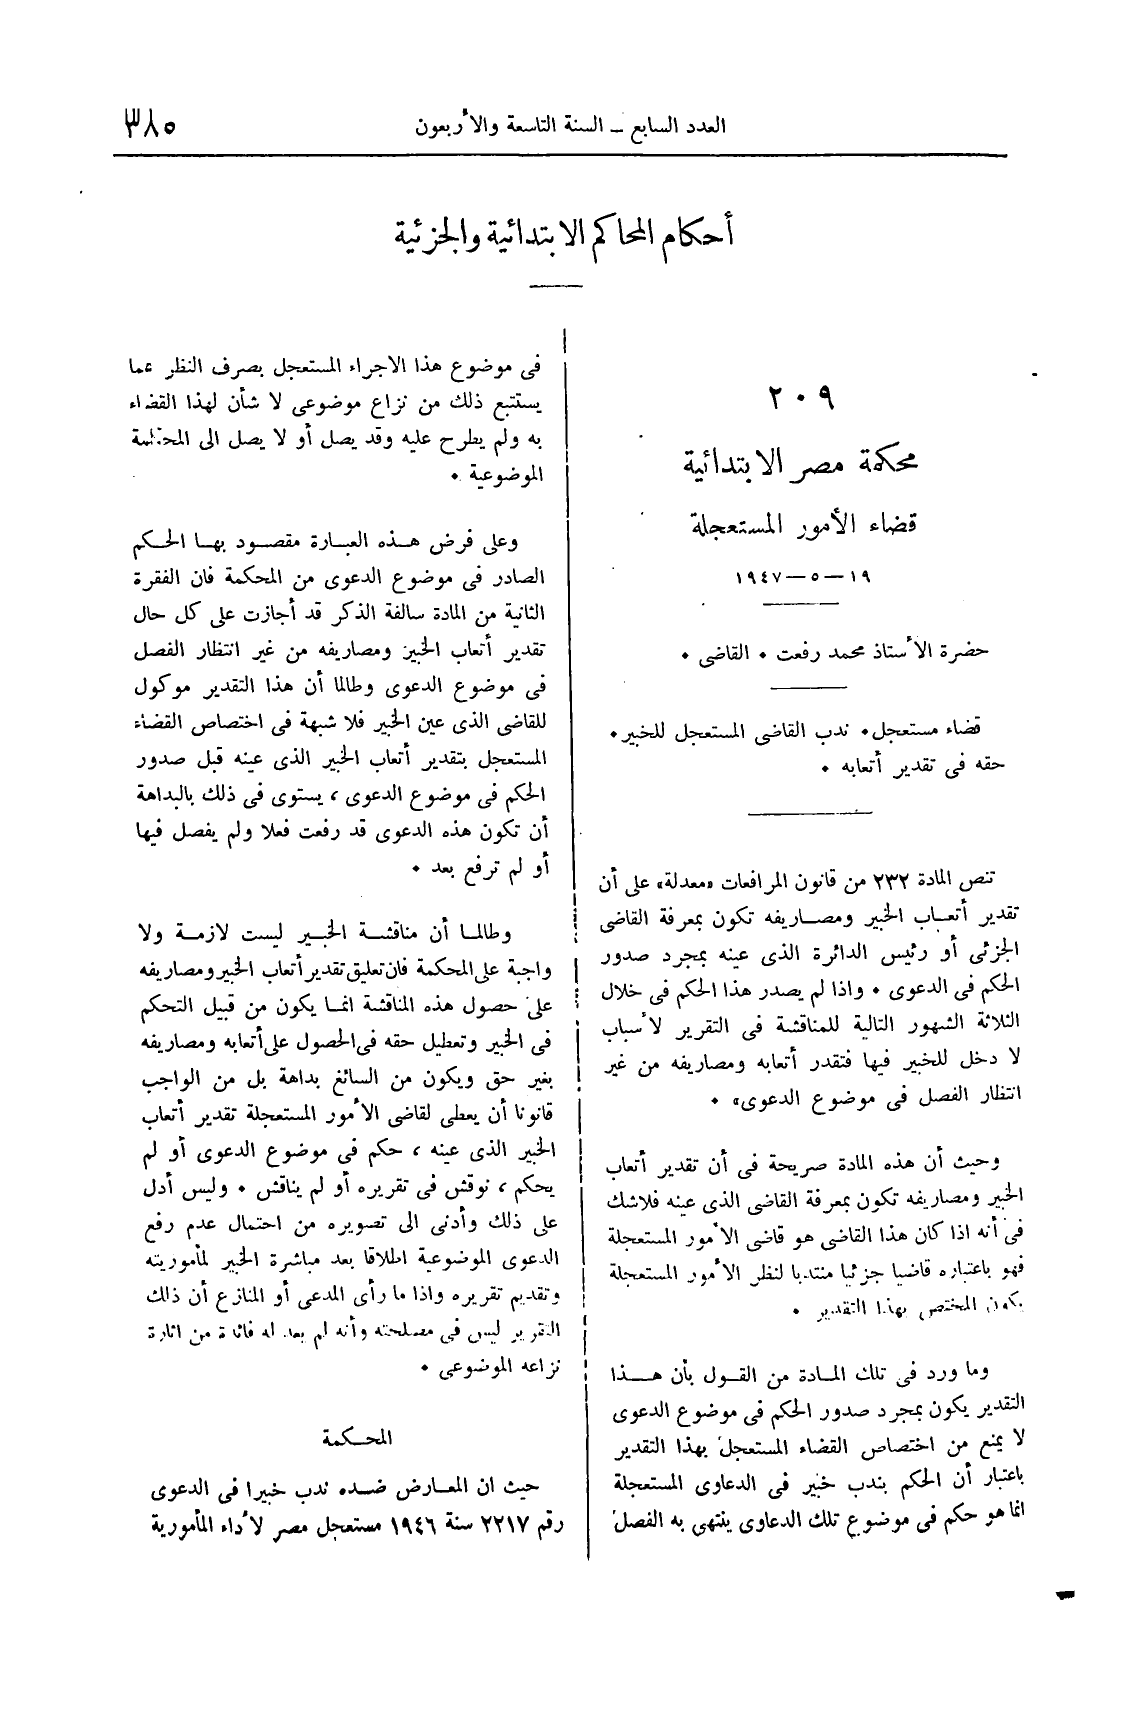 العدد السابع – السنة التاسعة والأربعون
٣٨٥
أحكام المحاكم الابتدائية والجزئية
٢٠٩
محكمة مصر الابتدائية
قضاء الأمور المستعجلة
١٩ – ٥ – ١٩٤٧
حضرة الأستاذ محمد رفعت ٠ القاضى ٠
قضاء مستعجل ٠ ندب القاضى المستعجل للخبير ٠
حقه فى تقدير أتعابه ٠
تنص المادة ٢٣٢ من قانون المرافعات «معدلة» على أن
تقدير أتعاب الخبير ومصاريفه تكون بمعرفة القاضى
الجزئى أو رئيس الدائرة الذى عينه بمجرد صدور
الحكم فى الدعوى ٠ واذا لم يصدر هذا الحكم فى خلال
الثلاثة الشهور التالية للمناقشة فى التقرير لأسباب
لا دخل للخبير فيها فتقدر أتعابه ومصاريفه من غير
انتظار الفصل فى موضوع الدعوى» ٠
وحيث أن هذه المادة صريحة فى أن تقدير أتعاب
الخبير ومصاريفه تكون بمعرفة القاضى الذى عينه فلاشك
فى أنه اذا كان هذا القاضى هو قاضى الأمور المستعجلة
فهو باعتباره قاضيا جزئيا منتدبا لنظر الأمور المستعجلة
يكون المختص بهذا التقدير ٠
وما ورد فى تلك المادة من القول بأن هذا
التقدير يكون بمجرد صدور الحكم فى موضوع الدعوى
لا يمنع من اختصاص القضاء المستعجل بهذا التقدير
باعتبار أن الحكم بندب خبير فى الدعاوى المستعجلة
انما هو حكم فى موضوع تلك الدعاوى ينتهى به الفصل
فى موضوع هذا الاجراء المستعجل بصرف النظر عما
يستتبع ذلك من نزاع موضوعى لا شأن لهذا القضاء
به ولم يطرح عليه وقد يصل أو لا يصل الى المحكمة
الموضوعية ٠
وعلى فرض هذه العبارة مقصود بها الحكم
الصادر فى موضوع الدعوى من المحكمة فان الفقرة
الثانية من المادة سالفة الذكر قد أجازت على كل حال
تقدير أتعاب الخبير ومصاريفه من غير انتظار الفصل
فى موضوع الدعوى وطالما أن هذا التقدير موكول
للقاضى الذى عين الخبير فلا شبهة فى اختصاص القضاء
المستعجل بتقدير أتعاب الخبير الذى عينه قبل صدور
الحكم فى موضوع الدعوى ، يستوى فى ذلك بالبداهة
أن تكون هذه الدعوى قد رفعت فعلا ولم يفصل فيها
أو لم ترفع بعد ٠
وطالما أن مناقشة الخبير ليست لازمة ولا
واجبة على المحكمة فان تعليق تقدير أتعاب الخبير ومصاريفه
على حصول هذه المناقشة انما يكون من قبيل التحكم
فى الخبير وتعطيل حقه فى الحصول على أتعابه ومصاريفه
بغير حق ويكون من السائغ بداهة بل من الواجب
قانونا أن يعطى لقاضى الأمور المستعجلة تقدير أتعاب
الخبير الذى عينه ، حكم فى موضوع الدعوى أو لم
يحكم ، نوقش فى تقريره أو لم يناقش ٠ وليس أدل
على ذلك وأدنى الى تصويره من احتمال عدم رفع
الدعوى الموضوعية اطلاقا بعد مباشرة الخبير لمأموريته
وتقديم تقريره واذا ما رأى المدعى أو المنازع أن ذلك
التقرير ليس فى مصلحته وأنه لم يعد له فائدة من اثارة
نزاعه الموضوعى ٠
المحكمة
حيث ان المعارض ضده ندب خبيرا فى الدعوى
رقم ٢٢١٧ سنة ١٩٤٦ مستعجل مصر لأداء المأمورية